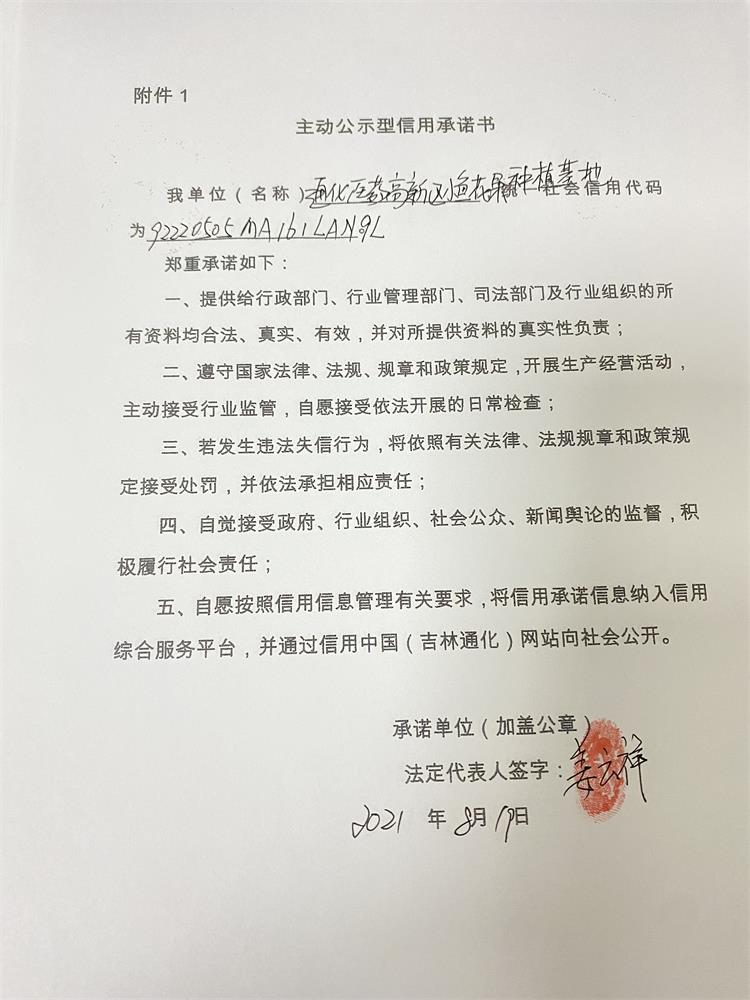 附件 1
主动公示型信用承诺书
我单位（名称）通化医药高新区 种植基地 社会信用代码
为 92220505MA161LAN9L
郑重承诺如下：
一、提供给行政部门、行业管理部门、司法部门及行业组织的所
有资料均合法、真实、有效，并对所提供资料的真实性负责；
二、遵守国家法律、法规、规章和政策规定，开展生产经营活动，
主动接受行业监管，自愿接受依法开展的日常检查；
三、若发生违法失信行为，将依照有关法律、法规规章和政策规
定接受处罚，并依法承担相应责任；
四、自觉接受政府、行业组织、社会公众、新闻舆论的监督，积
极履行社会责任；
五、自愿按照信用信息管理有关要求，将信用承诺信息纳入信用
综合服务平台，并通过信用中国（吉林通化）网站向社会公开。
承诺单位（加盖公章）
法定代表人签字：姜云祥
2021 年 8月19日